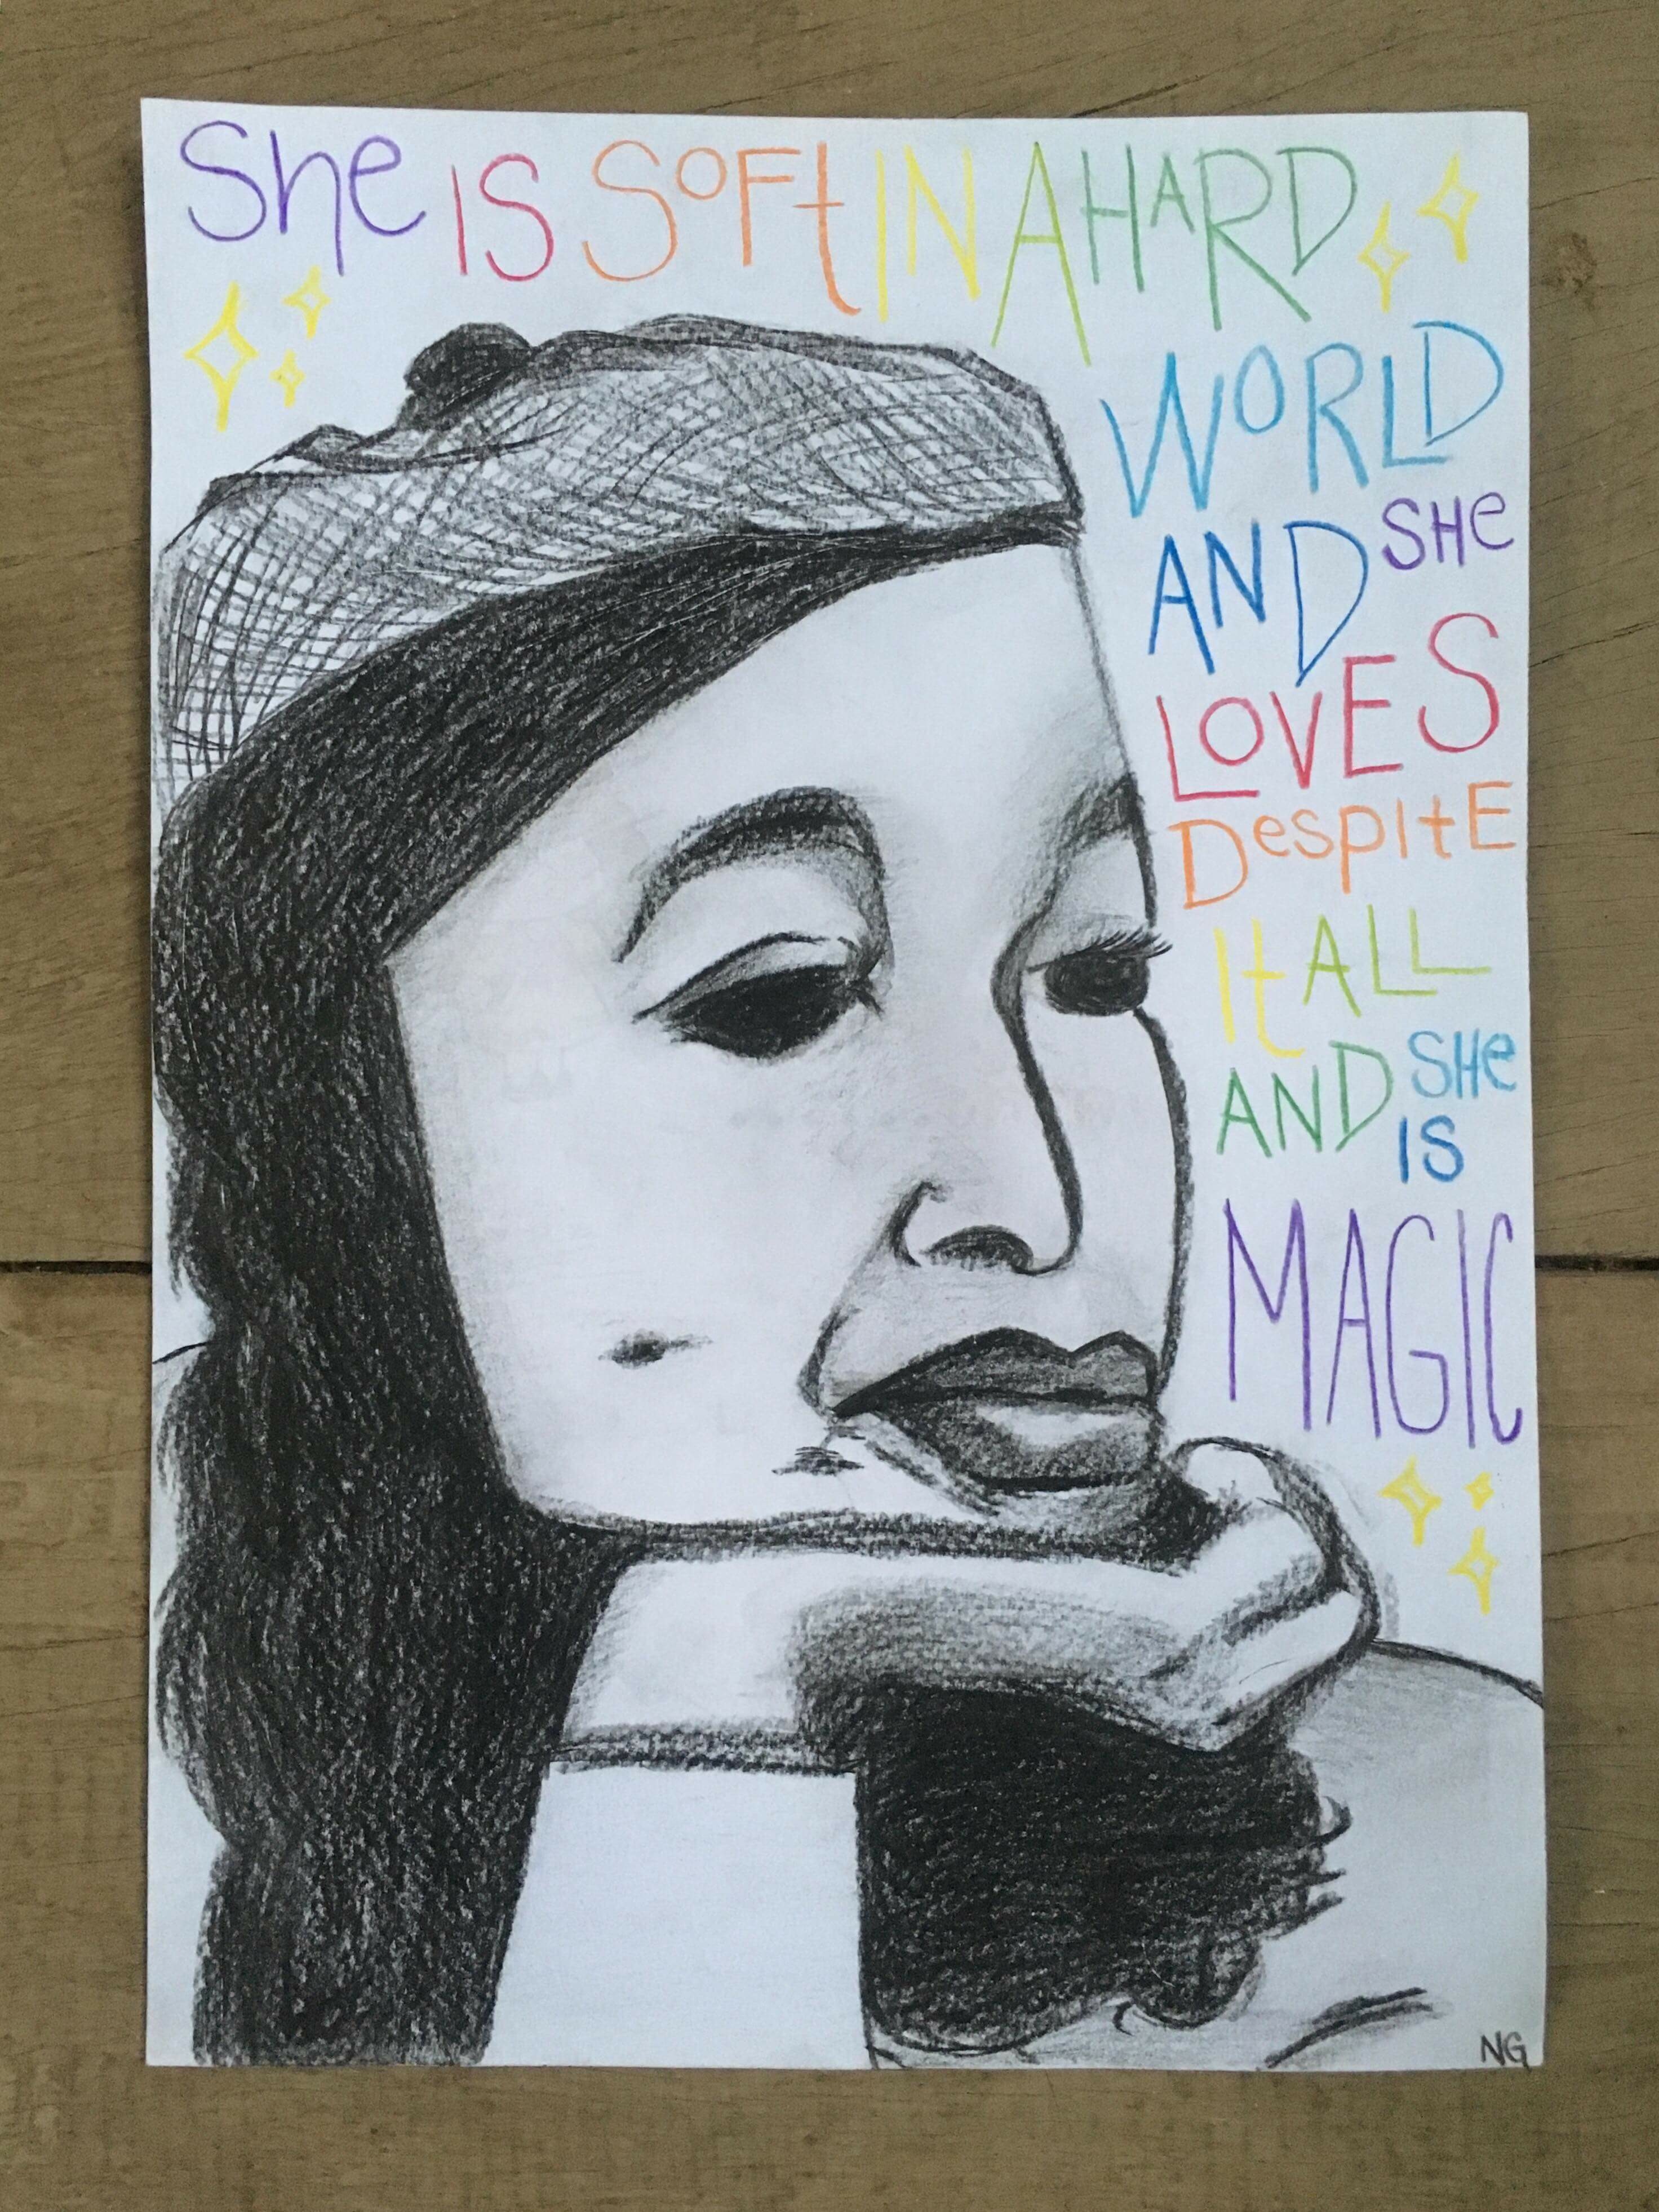 She IS SOFt IN A HARD
WORLD
AND SHe
LOVES
DespItE
It ALL
AND SHe
IS
MAGIC
NG